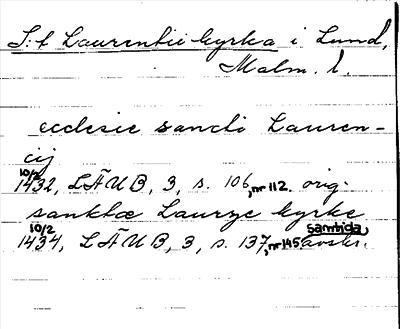 S:t Laurentii kyrka i Lund,
Malm. l.
ecclesie sancti Lauren-
cij
10/2
1432, LÄUB, 3, s. 106, nr 112. orig.
sanktæ Laurze kyrke
10/2 samtida
1434, LÄUB, 3, s. 137, nr 145 avskr.